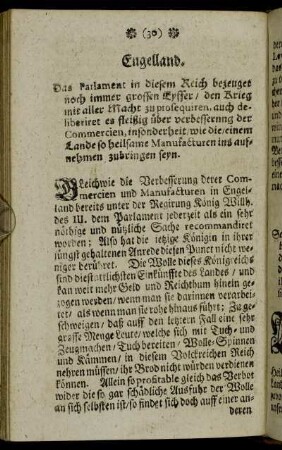 (30)
Engelland.
Das Parlament in diesem Reich bezeuget
noch immer grossen Eyffer / den Krieg
mit aller Macht zu prosequiren, auch de-
liberiret es fleißig über verbesserung der
Commercien, insonderheit wie die / einem
Lande so heilsame Manufacturen ins auf-
nehmen zubringen seyn.
GLeichwie die Verbesserung derer Com-
mercien und Manufacturen in Engel-
land bereits unter der Regirung König Wilh.
des III. dem Parlament jederzeit als ein sehr
nöthige und nützliche Sache recommandiret
worden; Also hat die letzige Königin in ihrer
jüngst gehaltenen Anrede diesen Punct nicht we-
niger berühret. Die Wolle dieses Königreichs
sind die stattlichsten Einkünffte des Landes / und
kan weit mehr Geld und Reichthum hinein ge-
zogen werden / wenn man sie darinnen verarbei-
tet / als wenn man sie rohe hinaus führt; Zu ge-
schweigen / daß auff den letztern Fall eine sehr
grosse Menge Leute / welche sich mit Tuch- und
Zeugmachen / Tuch bereiten / Wolle-Spinnen
und Kämmen / in diesem Volckreichen Reich
nehren müssen / ihr Brod nicht würden verdienen
können. Allein so profitable gleich das Verbot
wider die so gar schädliche Ausfuhr der Wolle
an sich selbsten ist / so findet sich doch auff einer an-
deren